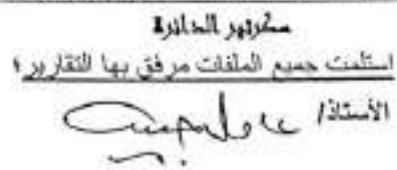 سكرتير الدائرة
استلمت جميع الملفات مرفق بها التقارير ؟
الأستاذ/